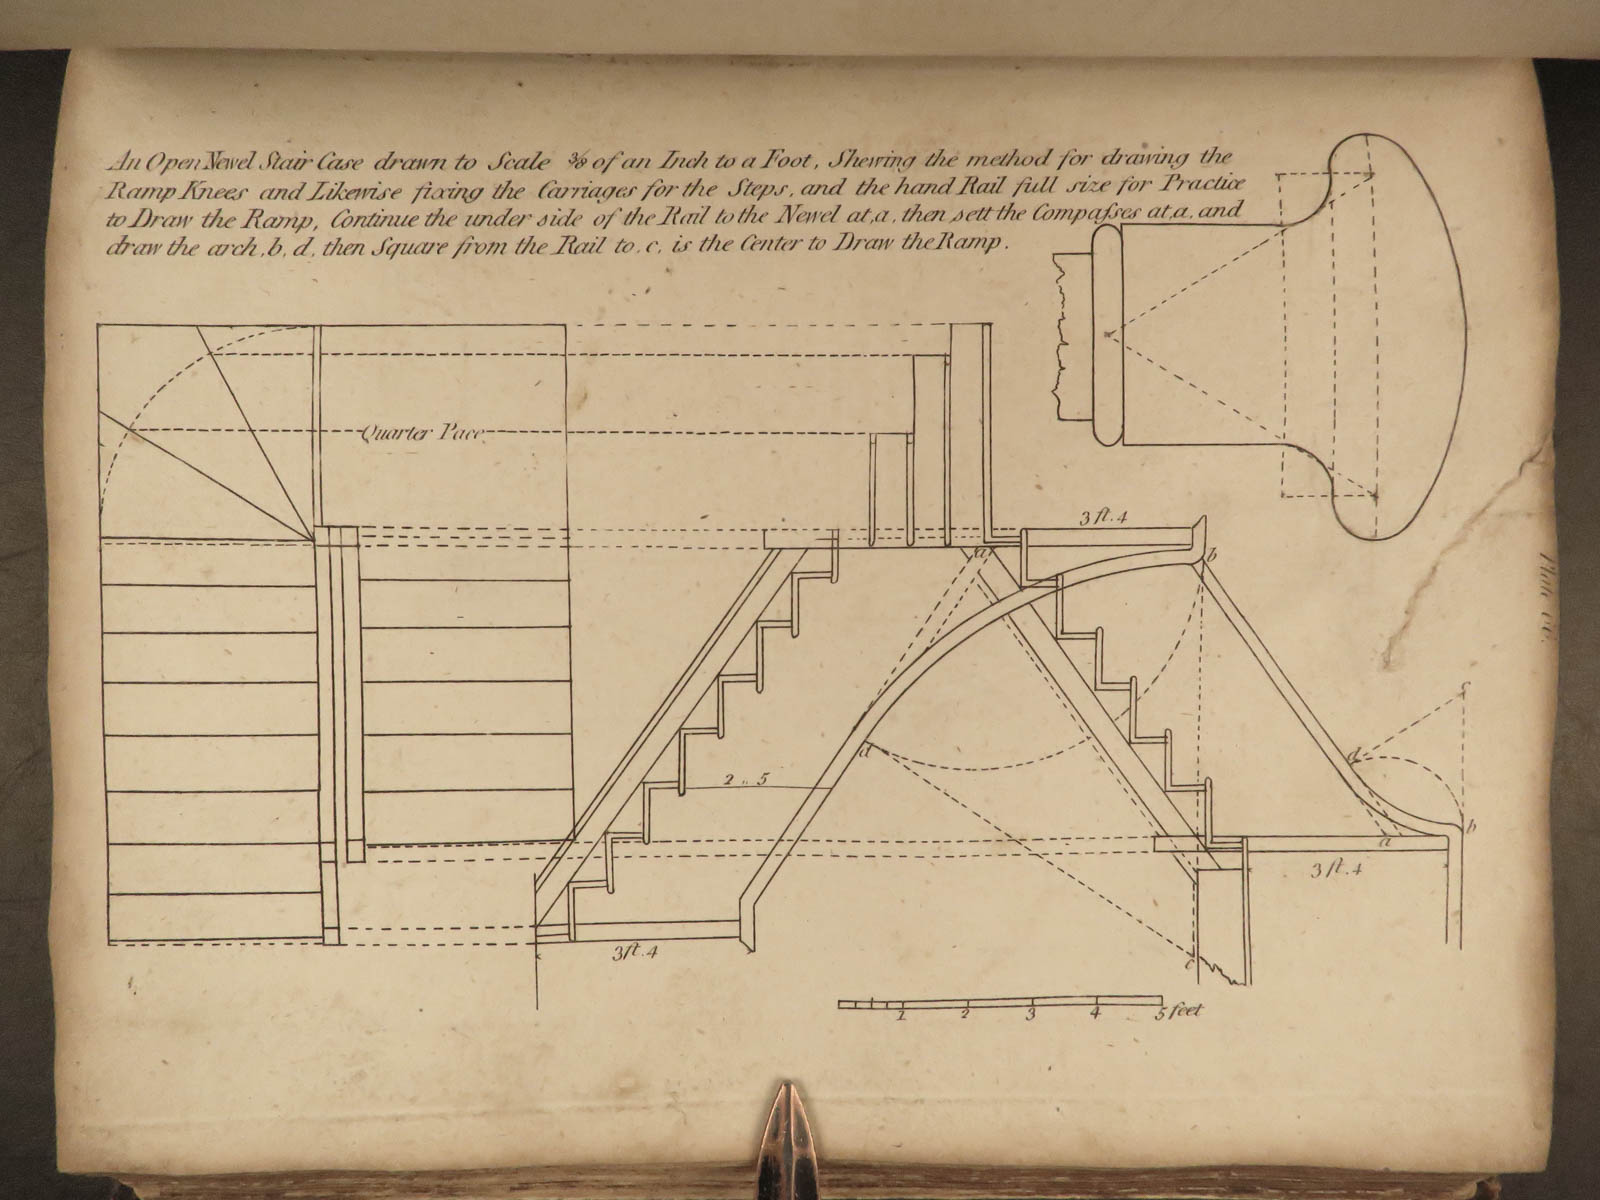 An Open Newel Stair Case drawn to Scale ⅜ of an Inch to a Foot, Shewing the method for drawing the
Ramp Knees and Likewise fixing the Carriages for the Steps, and the hand Rail full size for Practice
to Draw the Ramp, Continue the under side of the Rail to the Newel at, a, then sett the Compaſses at, a, and
draw the arch, b, d, then Square from the Rail to, c, is the Center to Draw the Ramp.
Quarter Pace
3 ft. 4
a
b
c
d
2 .. 5
d
b
a
3 ft. 4
3 ft. 4
c
1 2 3 4 5 feet